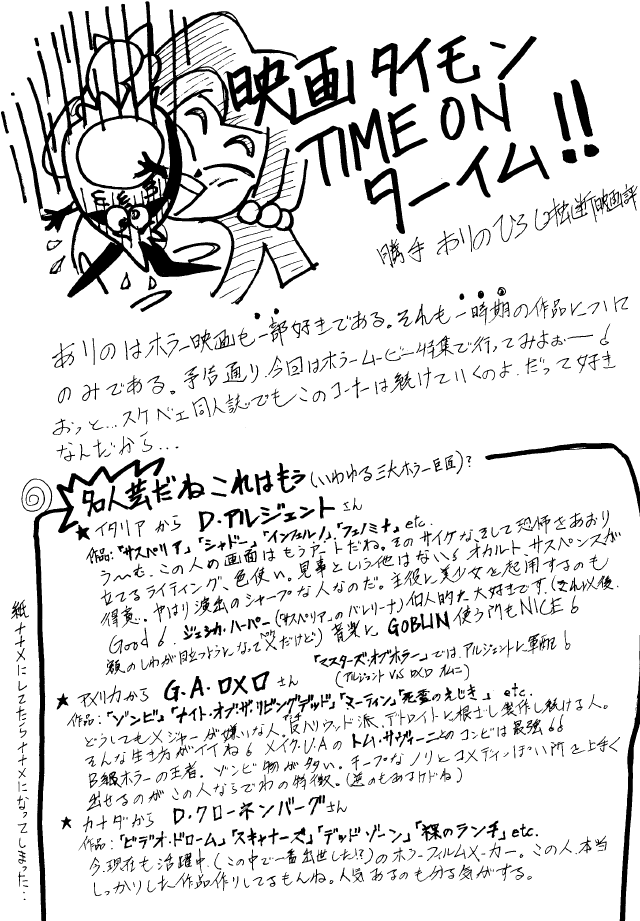 映画タイモン
TIME ON
ターイム!!
勝手 ありのひろし独断映画評
ありのはホラー映画も一部好きである。それも一時期の作品について
のみである。予告通り、今回はホラームービー特集で行ってみよぉーーる
おっと…スケベェ同人誌でもこのコーナーは続けていくのよ、だって好き
なんだから…
名人芸だね これはもう(いわゆる三大ホラー巨匠)?
★イタリアから D・アルジェントさん
作品:「サスペリア」「シャドー」「インフェルノ」「フェノミナ」etc.
う〜む、この人の画面はもうアートだね。そのサイケな、そして恐怖をあおり
立てるライティング、色使い。見事という他はない。オカルト、サスペンスが
得意。やはり演出のシャープな人なのだ。主役に美少女を起用するのも
Good。ジェシカ・ハーパー(「サスペリア」のバレリーナ)個人的に大好きです。(それ以後、
額のしわが目立つようになってダメだけど)音楽にGOBLIN使う所もNICE。
「マスターズ・オブ・ホラー」では、アルジェントに軍配。
(アルジェント VS ロメロ オムニ)
★アメリカから G.A・ロメロさん
作品:「ゾンビ」「ナイト・オブ・ザ・リビングデッド」「マーティン」「死霊のえじき」etc.
どうしてもメジャーが嫌いな人。反ハリウッド派、デトロイトに根ざし製作し続ける人。
そんな生き方がイイね。メイクU.Aのトム・サヴィーニとのコンビは最強。
B級ホラーの王者。ゾンビ物が多い。チープなノリとコメディっぽい所を上手く
出せるのがこの人ならでわの特徴。(逆のもあるけどね)
★カナダから D・クローネンバーグさん
作品:「ビデオ・ドローム」「スキャナーズ」「デッドゾーン」「裸のランチ」etc.
今、現在も活躍中。(この中で一番出世した!?)のホラーフィルムメーカー。この人、本当
しっかりした作品作りしてるもんね。人気あるのも分る気がする。
紙ナナメにしてたらナナメになってしまった…